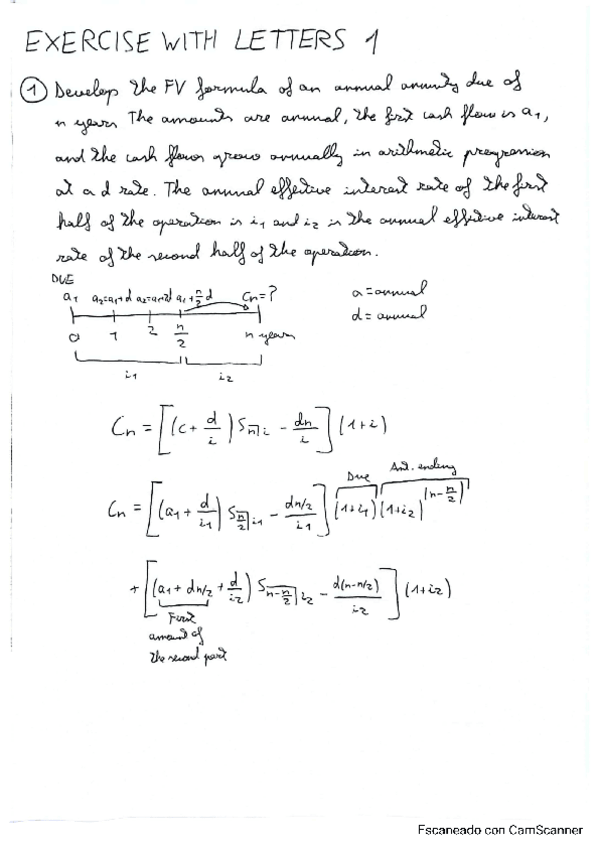 EXERCISE WITH LETTERS 1
① Develop the FV formula of an annual annuity due of
n years The amounts are annual, the first cash flow is a1,
and the cash flows grow annually in arithmetic progression
at a d rate. The annual effective interest rate of the first
half of the operation is i1 and i2 is the annual effective interest
rate of the second half of the operation.
DUE
a1 a2=a1+d a2=a1+2d a1+n/2 d Cn=?
a=annual
d=annual
0 1 2 n/2 n years
i1 i2
Cn = [(c + d/i) S n̅| i - dn/i] (1+i)
Due Ant. ending
Cn = [(a1 + d/i1) S n/2| i1 - dn/2 / i1] (1+i1) (1+i2)^(n-n/2)
+ [(a1 + dn/2 + d/i2) S n-n/2| i2 - d(n-n/2)/i2] (1+i2)
First
amount of
the second part
Escaneado con CamScanner